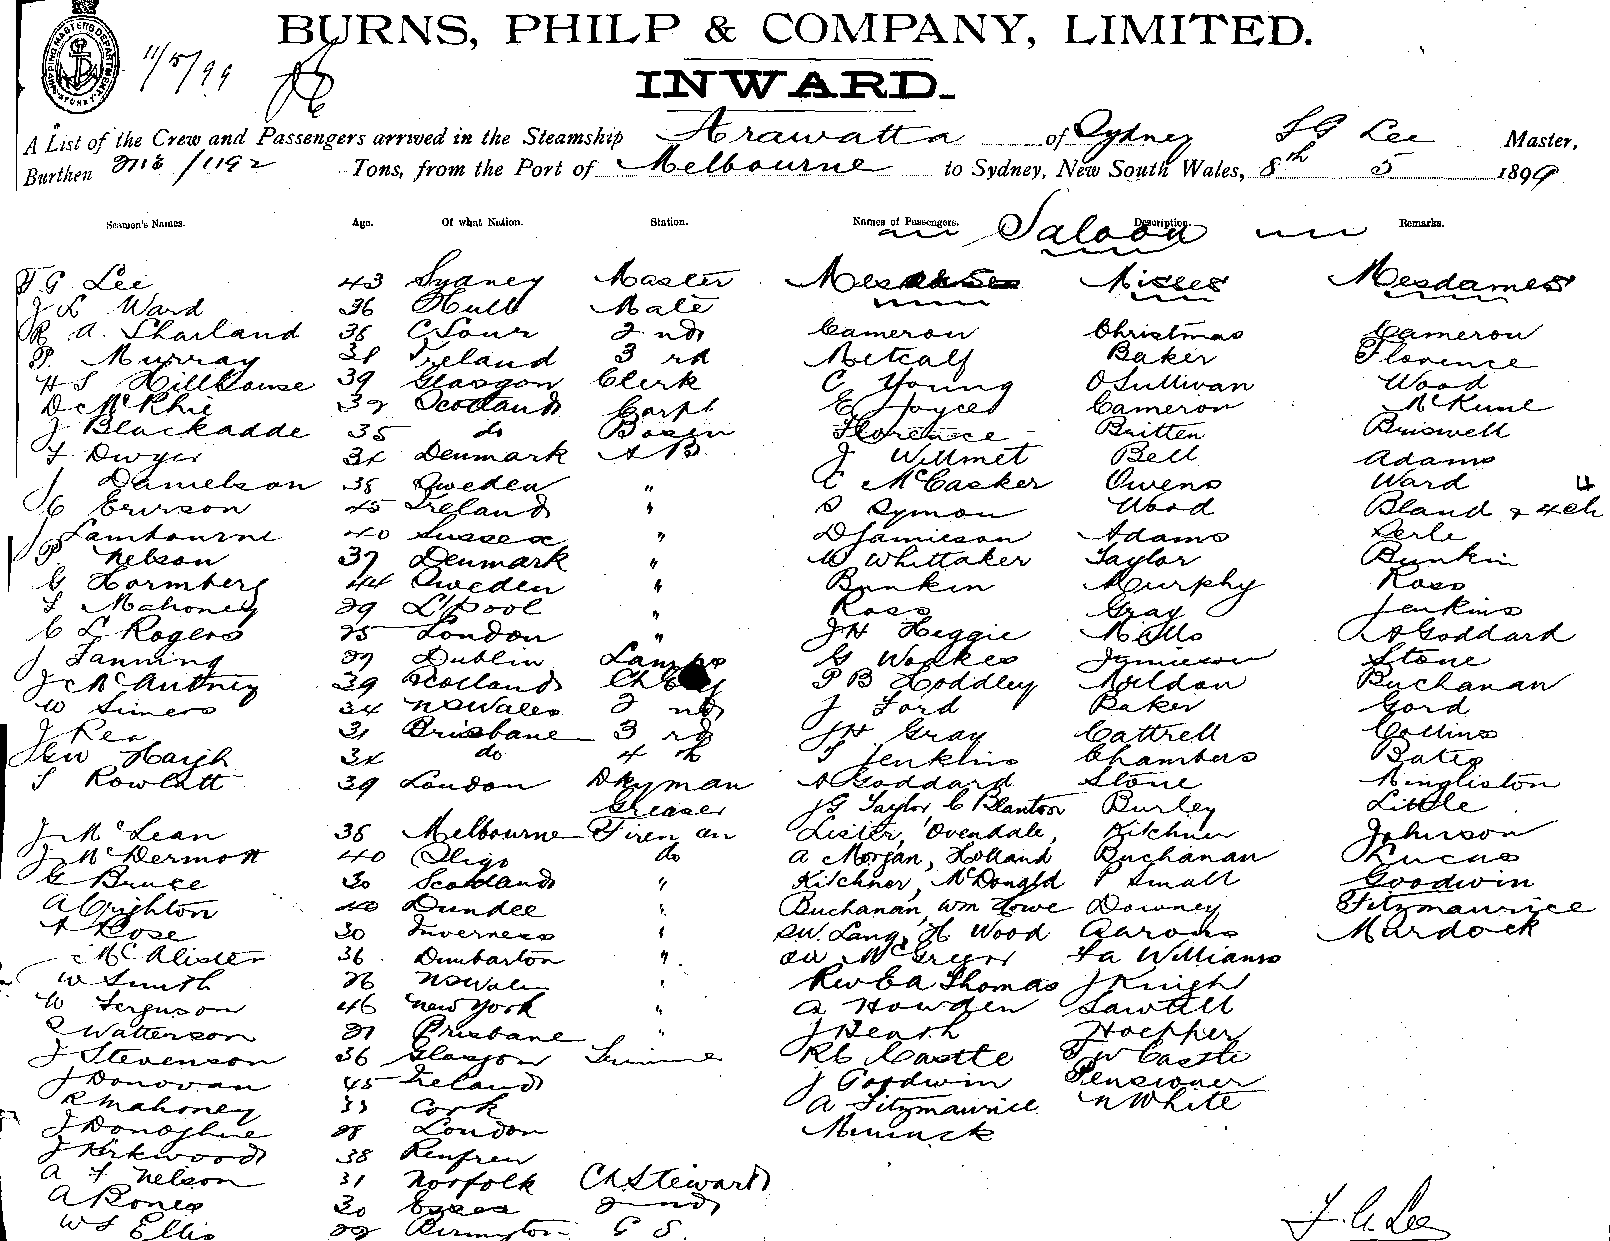 BURNS, PHILP & COMPANY, LIMITED.
11/5/99
INWARD.
A List of the Crew and Passengers arrived in the Steamship Arawatta of Sydney Lee Master,
Burthen /1192 Tons, from the Port of Melbourne to Sydney, New South Wales, 8th 5 1899
Seamen's Names. Age. Of what Nation. Station. Names of Passengers. Description. Remarks.
Saloon
G Lee 43 Sydney Master Misses Mesdames
Ward 36 Hull Mate
R A. Sharland 38 2nd Cameron Christmas Cameron
P. Murray Ireland 3rd Metcalf Baker Florence
H S Hillhouse 39 Glasgow Clerk C Young OSullivan Wood
D McPhie Scotland Carpt E Joyce Cameron McKune
J Blackadde 35 do Florence Britten Briswell
Dwyer Denmark AB J Willmet Bell Adams
J Danielson 38 Sweden " C McCasker Owens Ward
C Ericson 45 Ireland " S Symon Wood Bland & 4 ch
J Lambourne 40 Sussex " D Jamieson Adams Serle
P Nelson 37 Denmark " W Whittaker Taylor Bunkin
G Hormberg 44 Sweden " Bunkin Murphy Ross
Mahoney 29 L'pool " Ross Gray Jenkins
C L Rogers 25 London " JH Heggie Mills A Goddard
J Fanning 27 Dublin Lamps G Weakes Jamieson Stone
J McAutney 39 Scotland P B Hoddley Meldon Buchanan
W Simers 34 NSWales 2nd J Ford Baker Gord
J Rea 31 Brisbane 3rd JH Gray Cattrell Collins
Haigh do 4th Jenkins Chambers Bates
Rowlatt 39 London Dkyman A Goddard Stone Kingliston
Greaser JG Taylor, C Blanton Burley Little
J McLean 38 Melbourne Fireman Lister, Ovendale, Kitchner Johnson
J McDermott 40 Sligo do A Morgan, Holland Buchanan Lucas
G Bruce 30 Scotland " Kitchner, McDonald P Small Goodwin
A Crighton 40 Dundee " Buchanan, Wm Howe Downey Fitzmaurice
A Rose 30 Inverness " SW. Lang, H Wood Aarons Murdock
McAlister 36 Dumbarton " McGregor Williams
W Smith 26 NSWales " Rev EA Thomas J Knight
W Ferguson 46 New York " A Howden Sawtell
Watterson Brisbane " J Heath Hoepper
J Stevenson 36 Glasgow Trimmer RC Castle W Castle
J Donovan 45 Ireland J Goodwin Pensioner
R Mahoney 33 Cork A Fitzmaurice N White
J Donoghue 28 London
J Kirkwood 38 Renfrew
A F Nelson 31 Norfolk Ch Steward
A Bones 30 Essex 2nd
W Ellis G S.
Lee